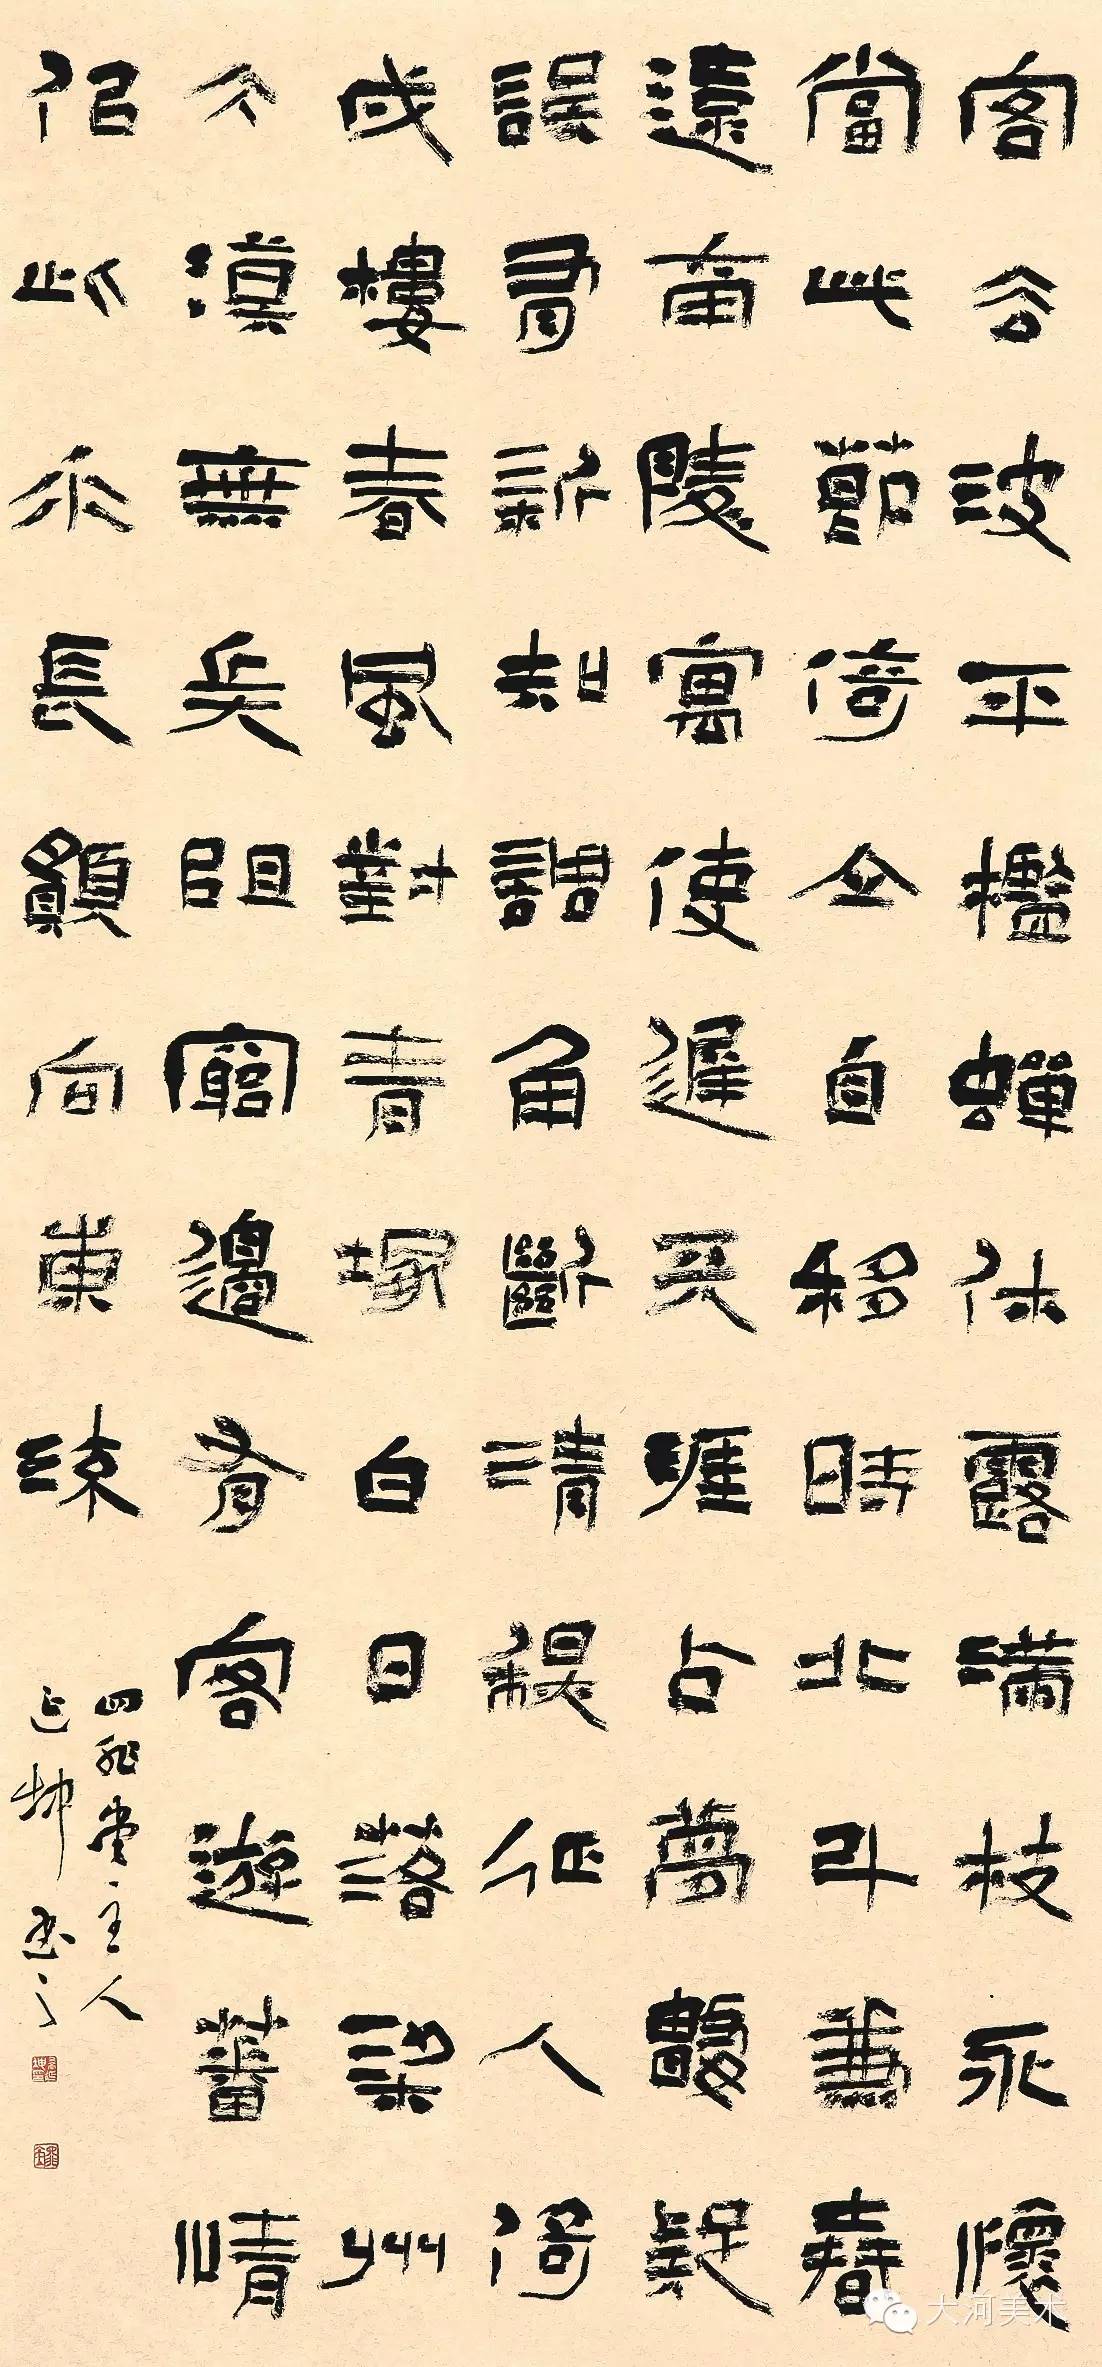 客去波平檻蟬休露滿枝永懷
當此節倚立自移時北斗兼春
遠南陵寓使遲天涯占夢數疑
誤有新知調角斷清秋征人倚
戍樓春風對青塚白日落梁州
大漠無兵阻窮邊有客遊蕃情
似此水長願向東流
四堂主人
延坤書之
大河美术